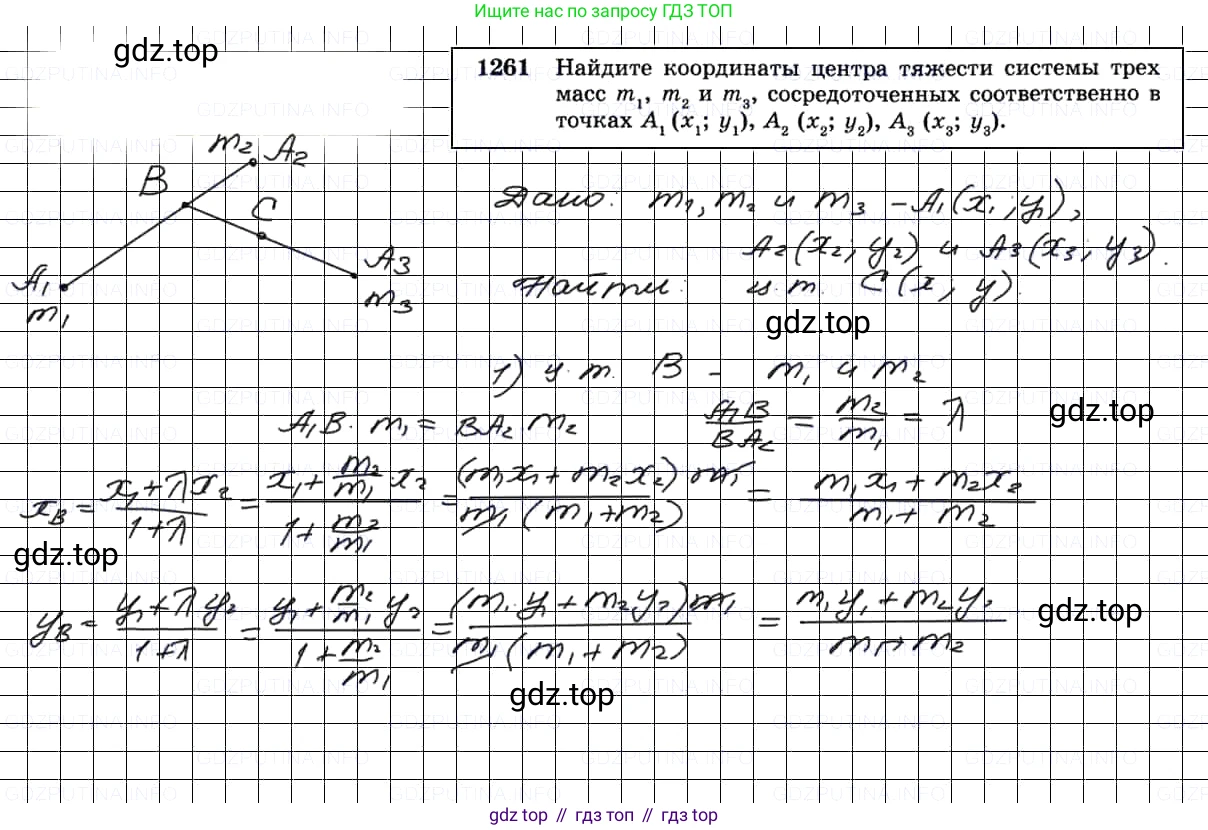 Ищите нас по запросу ГДЗ ТОП
gdz.top
1261 Найдите координаты центра тяжести системы трех
масс m₁, m₂ и m₃, сосредоточенных соответственно в
точках A₁ (x₁; y₁), A₂ (x₂; y₂), A₃ (x₃; y₃).
m₂ A₂
B
C
A₁
m₁
A₃
m₃
Дано: m₁, m₂ и m₃ – A₁(x₁; y₁),
A₂(x₂; y₂) и A₃(x₃; y₃).
Найти: ц.т. C(x; y).
gdz.top
1) ц.т. B – m₁ и m₂
A₁B · m₁ = BA₂ · m₂ A₁B/BA₂ = m₂/m₁ = λ
gdz.top
x_B = (x₁ + λx₂)/(1 + λ) = (x₁ + m₂/m₁ x₂)/(1 + m₂/m₁) = (m₁x₁ + m₂x₂) m₁/(m₁(m₁ + m₂)) = (m₁x₁ + m₂x₂)/(m₁ + m₂)
gdz.top
y_B = (y₁ + λy₂)/(1 + λ) = (y₁ + m₂/m₁ y₂)/(1 + m₂/m₁) = (m₁y₁ + m₂y₂) m₁/(m₁(m₁ + m₂)) = (m₁y₁ + m₂y₂)/(m₁ + m₂)
gdz.top
gdz.top
gdz top // гдз топ // гдз top